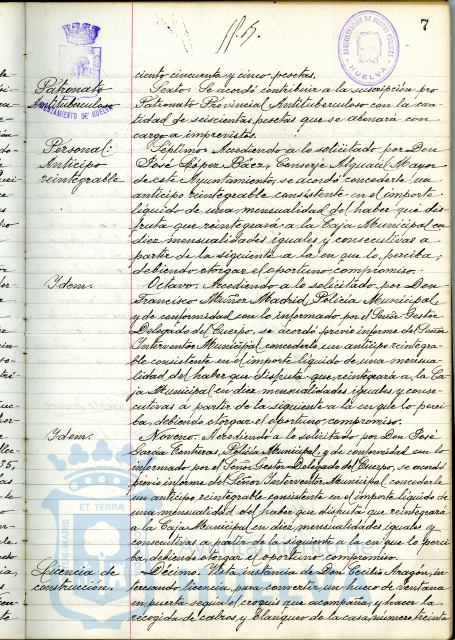 7
AYUNTAMIENTO DE HUELVA
HUELVA
Patronato
Antituberculoso
Personal:
Anticipo
reintegrable
Idem.
Idem.
Licencia de
construcción.
ciento cincuenta y cinco pesetas.
Sexto. Se acordó contribuir a la suscripción pro
Patronato Provincial Antituberculoso con la can-
tidad de seiscientas pesetas que se abonará con
cargo a imprevistos.
Séptimo. Accediendo a lo solicitado por Don
José López Báez, Conserje Alguacil Mayor
de este Ayuntamiento, se acordó concederle un
anticipo reintegrable consistente en el importe
líquido de una mensualidad del haber que dis-
fruta que reintegrará a la Caja Municipal en
diez mensualidades iguales y consecutivas a
partir de la siguiente a la en que lo perciba,
debiendo otorgar el oportuno compromiso.
Octavo. Accediendo a lo solicitado por Don
Francisco Muñoz Madrid, Policía Municipal,
y de conformidad con lo informado por el Señor Gestor
Delegado del Cuerpo, se acordó previo informe del Señor
Interventor Municipal, concederle un anticipo reintegra-
ble consistente en el importe líquido de una mensua-
lidad del haber que disfruta que reintegrará a la Ca-
ja Municipal en diez mensualidades iguales y conse-
cutivas a partir de la siguiente a la en que lo perci-
ba, debiendo otorgar el oportuno compromiso.
Noveno. Accediendo a lo solicitado por Don José
García Contreras, Policía Municipal, y de conformidad con lo
informado por el Señor Gestor Delegado del Cuerpo, se acordó
previo informe del Señor Interventor Municipal concederle
un anticipo reintegrable consistente en el importe líquido de
una mensualidad del haber que disfruta que reintegrará
a la Caja Municipal en diez mensualidades iguales y
consecutivas a partir de la siguiente a la en que lo perci-
ba, debiendo otorgar el oportuno compromiso.
Décimo. Vista instancia de Don Cecilio Aragón, in-
teresando licencia para convertir un hueco de ventana
en puerta según el croquis que acompaña, y hacer la
recogida de calizos, y blanqueo de la casa numero treinta
ET TERRÆ